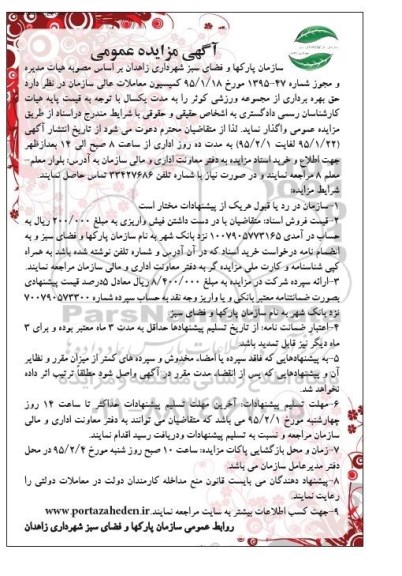 آگهی مزایده عمومی
سازمان پارکها و فضای سبز شهرداری زاهدان بر اساس مصوبه هیات مدیره
و مجوز شماره ۴۷-۱۳۹۵ مورخ ۹۵/۱/۱۸ کمیسیون معاملات عالی سازمان در نظر دارد
حق بهره برداری از مجموعه ورزشی کوثر را به مدت یکسال با توجه به قیمت پایه هیات
کارشناسان رسمی دادگستری به اشخاص حقیقی و حقوقی با شرایط مندرج در اسناد از طریق
مزایده عمومی واگذار نماید. لذا از متقاضیان محترم دعوت می شود از تاریخ انتشار آگهی
(۹۵/۱/۲۲ لغایت ۹۵/۲/۱) به مدت ده روز اداری از ساعت ۸ صبح الی ۱۴ بعدازظهر
جهت اطلاع و خرید اسناد مزایده به دفتر معاونت اداری و مالی سازمان به آدرس: بلوار معلم-
معلم ۸ مراجعه نمایند و در صورت نیاز با شماره تلفن ۳۳۴۲۷۶۸۶ تماس حاصل نمایند.
شرایط مزایده:
۱-سازمان در رد یا قبول هریک از پیشنهادات مختار است.
۲-قیمت فروش اسناد: متقاضیان با در دست داشتن فیش واریزی به مبلغ ۲۰۰/۰۰۰ ریال به
حساب در آمدی ۱۰۰۷۹۰۵۷۷۳۱۶۵ نزد بانک شهر به نام سازمان پارکها و فضای سبز و به
انضمام نامه درخواست خرید اسناد که در آن آدرس و شماره تلفن نوشته شده باشد به همراه
کپی شناسنامه و کارت ملی مزایده گر به دفتر معاونت اداری و مالی سازمان مراجعه نمایند.
۳-ارائه سپرده شرکت در مزایده به مبلغ ۸/۴۰۰/۰۰۰ ریال معادل ۵درصد قیمت پیشنهادی
بصورت ضمانتنامه معتبر بانکی و یا واریز وجه نقد به حساب سپرده شماره ۷۰۰۷۹۰۵۷۳۳۰۰
نزد بانک شهر به نام سازمان پارکها و فضای سبز
۴-اعتبار ضمانت نامه: از تاریخ تسلیم پیشنهادها حداقل به مدت ۳ ماه معتبر بوده و برای ۳
ماه دیگر نیز قابل تمدید باشد.
۵-به پیشنهادهایی که فاقد سپرده یا امضاء، مخدوش و سپرده های کمتر از میزان مقرر و نظایر
آن و پیشنهادهایی که پس از انقضاء مدت مقرر در آگهی واصل شود مطلقا ترتیب اثر داده
نخواهد شد.
۶-مهلت تسلیم پیشنهادات: آخرین مهلت تسلیم پیشنهادات حداکثر تا ساعت ۱۴ روز
چهارشنبه مورخ ۹۵/۲/۱ می باشد که متقاضیان می توانند به دفتر معاونت اداری و مالی
سازمان مراجعه و نسبت به تسلیم پیشنهادات و دریافت رسید اقدام نمایند.
۷-زمان و محل بازگشایی پاکات مزایده: ساعت ۱۰ صبح روز شنبه مورخ ۹۵/۲/۴ در محل
دفتر مدیرعامل سازمان می باشد.
۸-پیشنهاد دهندگان می بایست قانون منع مداخله کارمندان دولت در معاملات دولتی را
رعایت نمایند.
۹-جهت کسب اطلاعات بیشتر به سایت مراجعه نمایند.www.portazaheden.ir
روابط عمومی سازمان پارکها و فضای سبز شهرداری زاهدان